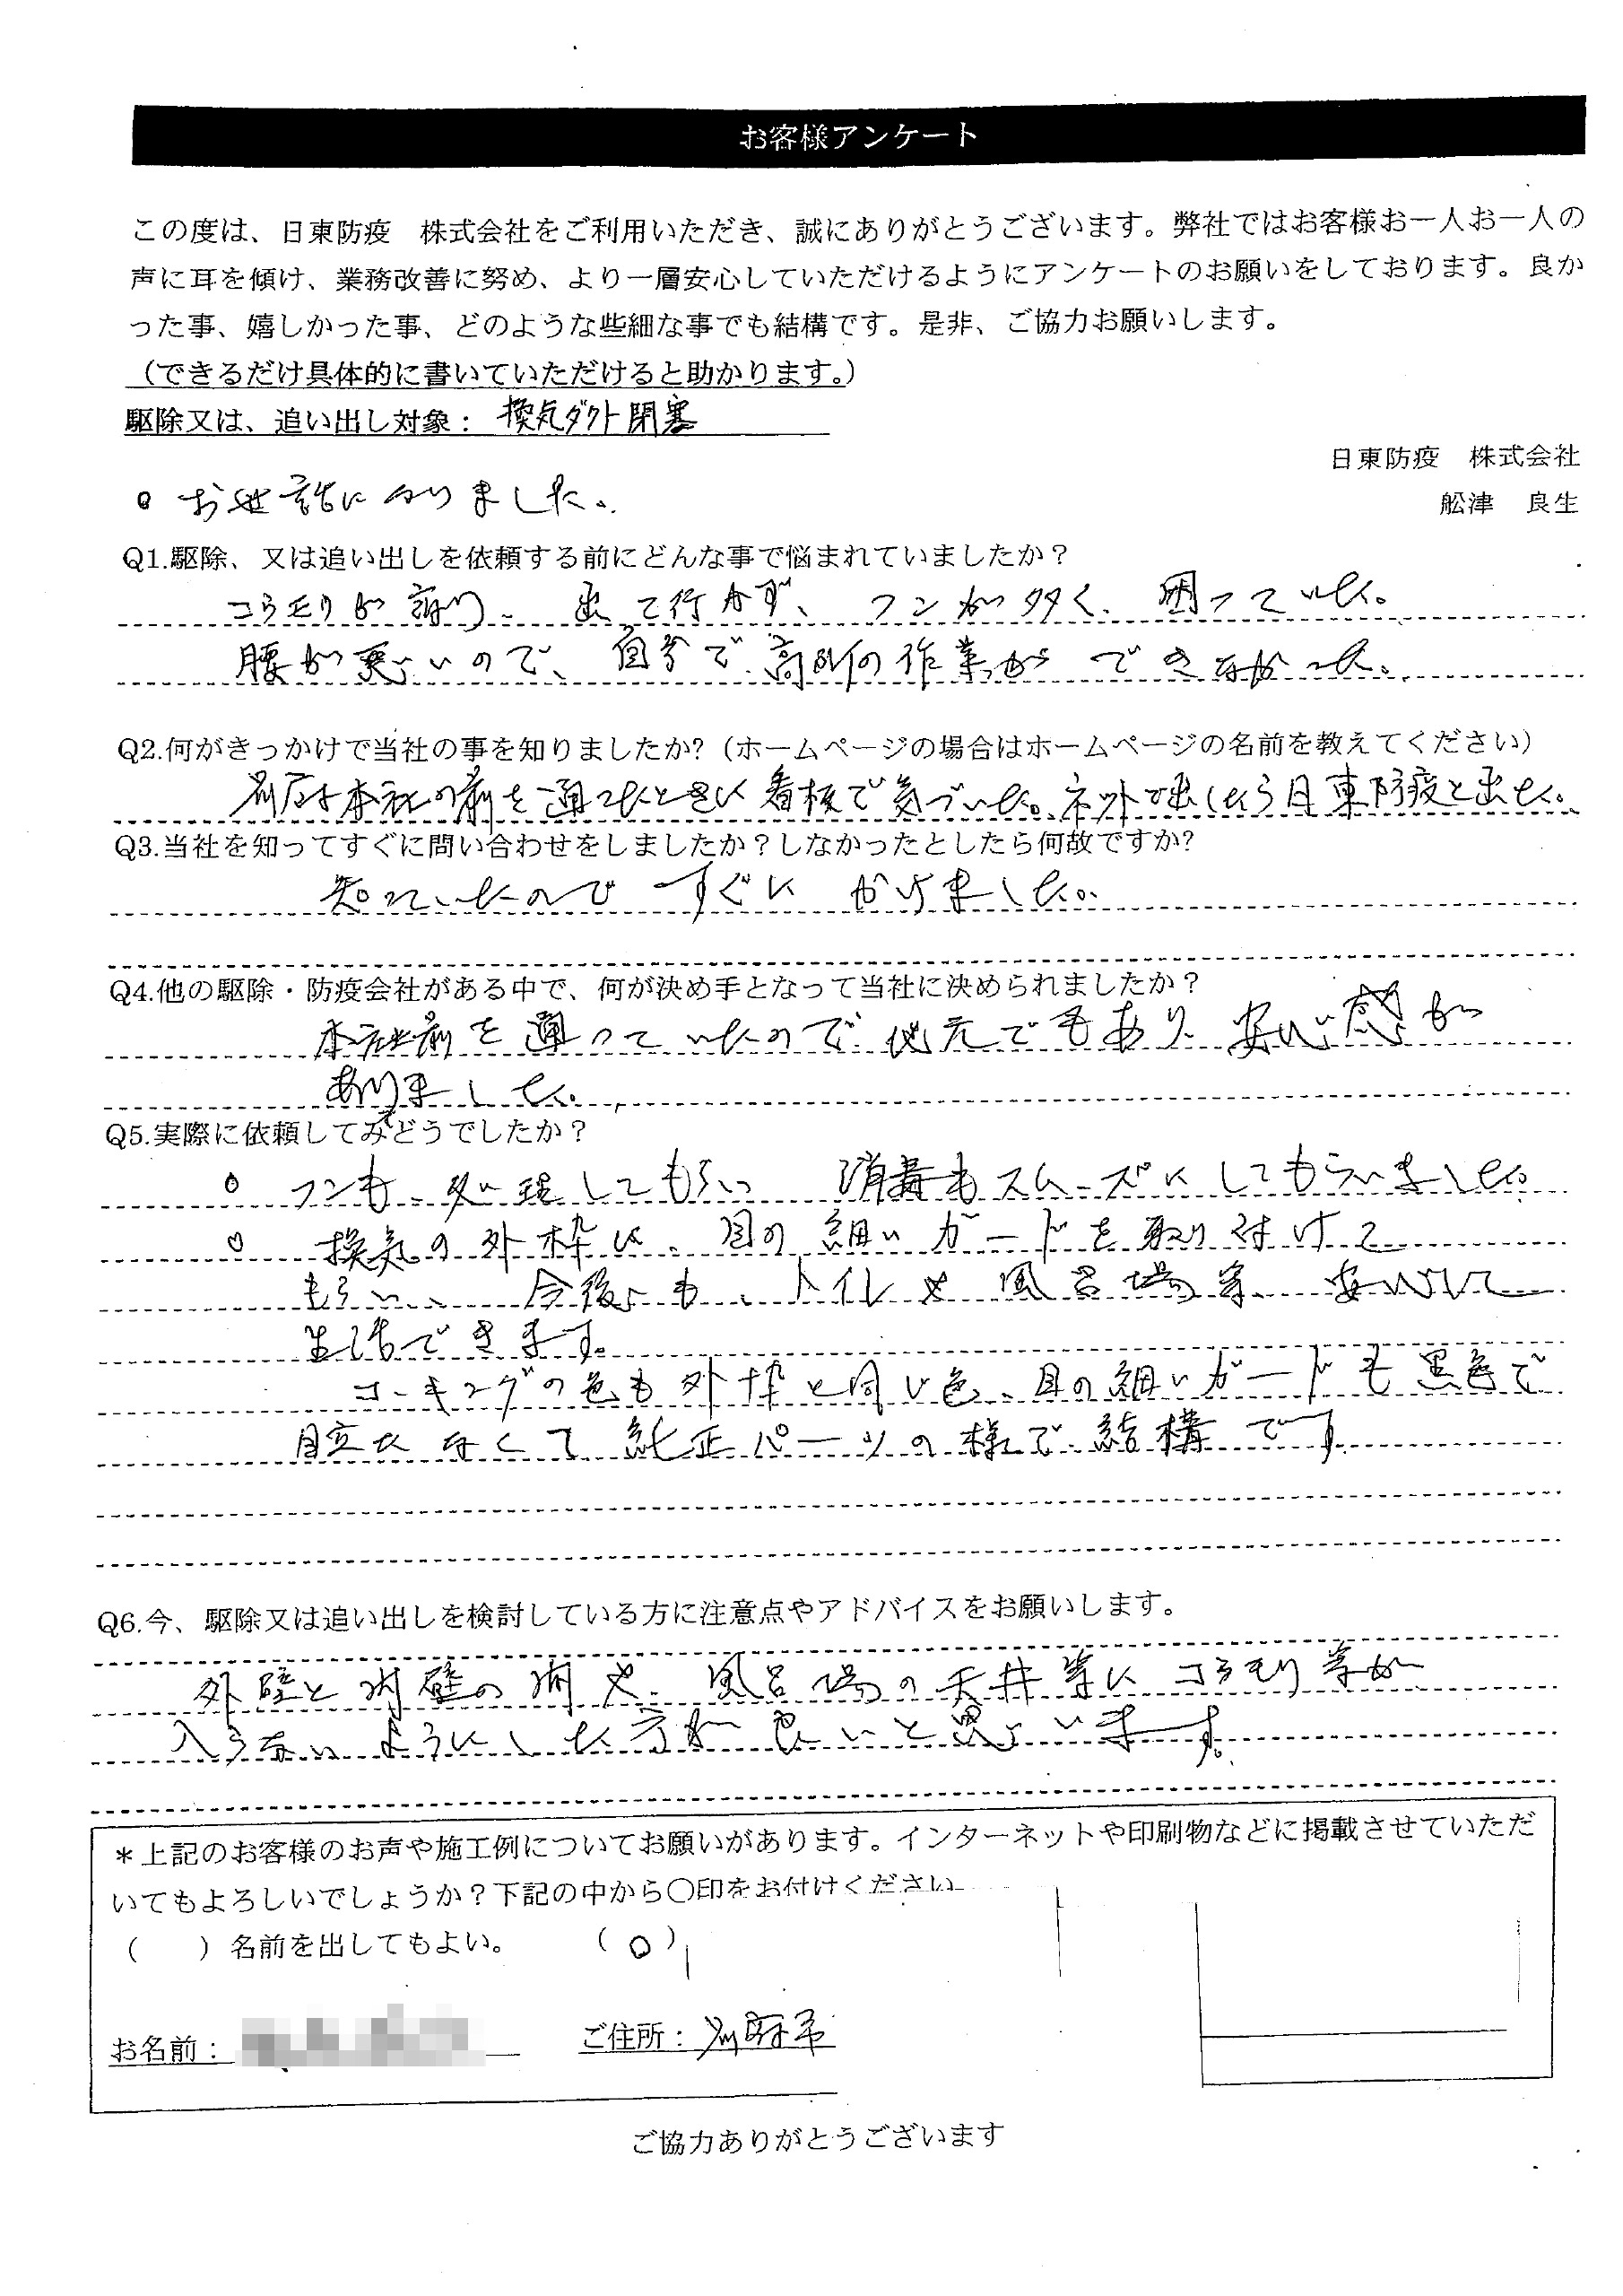 お客様アンケート
この度は、日東防疫　株式会社をご利用いただき、誠にありがとうございます。弊社ではお客様お一人お一人の
声に耳を傾け、業務改善に努め、より一層安心していただけるようにアンケートのお願いをしております。良か
った事、嬉しかった事、どのような些細な事でも結構です。是非、ご協力お願いします。
（できるだけ具体的に書いていただけると助かります。）
駆除又は、追い出し対象：換気ダクト閉塞
日東防疫　株式会社
。お世話になりました。
舩津　良生
Q1.駆除、又は追い出しを依頼する前にどんな事で悩まれていましたか？
コウモリが 出て行かず、フンが多く、困っていた。
腰が悪いので、自分で高所の作業ができなかった。
Q2.何がきっかけで当社の事を知りましたか?（ホームページの場合はホームページの名前を教えてください）
本社の前を通ったときに看板で気づいた。ネットで出したら日東防疫と出た。
Q3.当社を知ってすぐに問い合わせをしましたか？しなかったとしたら何故ですか?
知っていたのですぐにかけました。
Q4.他の駆除・防疫会社がある中で、何が決め手となって当社に決められましたか？
本社前を通っていたので地元でもあり、安心感が
ありました。
Q5.実際に依頼してみどうでしたか？
。フンも処理してもらい 消毒もスムーズにしてもらいました。
。換気の外枠に、目の細いガードを取り付けて
もらい、今後も、トイレや風呂場等、安心して
生活できます。
コーキングの色も外枠と同じ色、目の細いガードも黒色で
目立たなくて純正パーツの様で結構です
Q6.今、駆除又は追い出しを検討している方に注意点やアドバイスをお願いします。
外壁と内壁の間や、風呂場の天井等にコウモリ等が
入らないようにした方が良いと思います。
＊上記のお客様のお声や施工例についてお願いがあります。インターネットや印刷物などに掲載させていただ
いてもよろしいでしょうか？下記の中から〇印をお付けください
（　　）名前を出してもよい。　（〇）
お名前：　ご住所：別府市
ご協力ありがとうございます